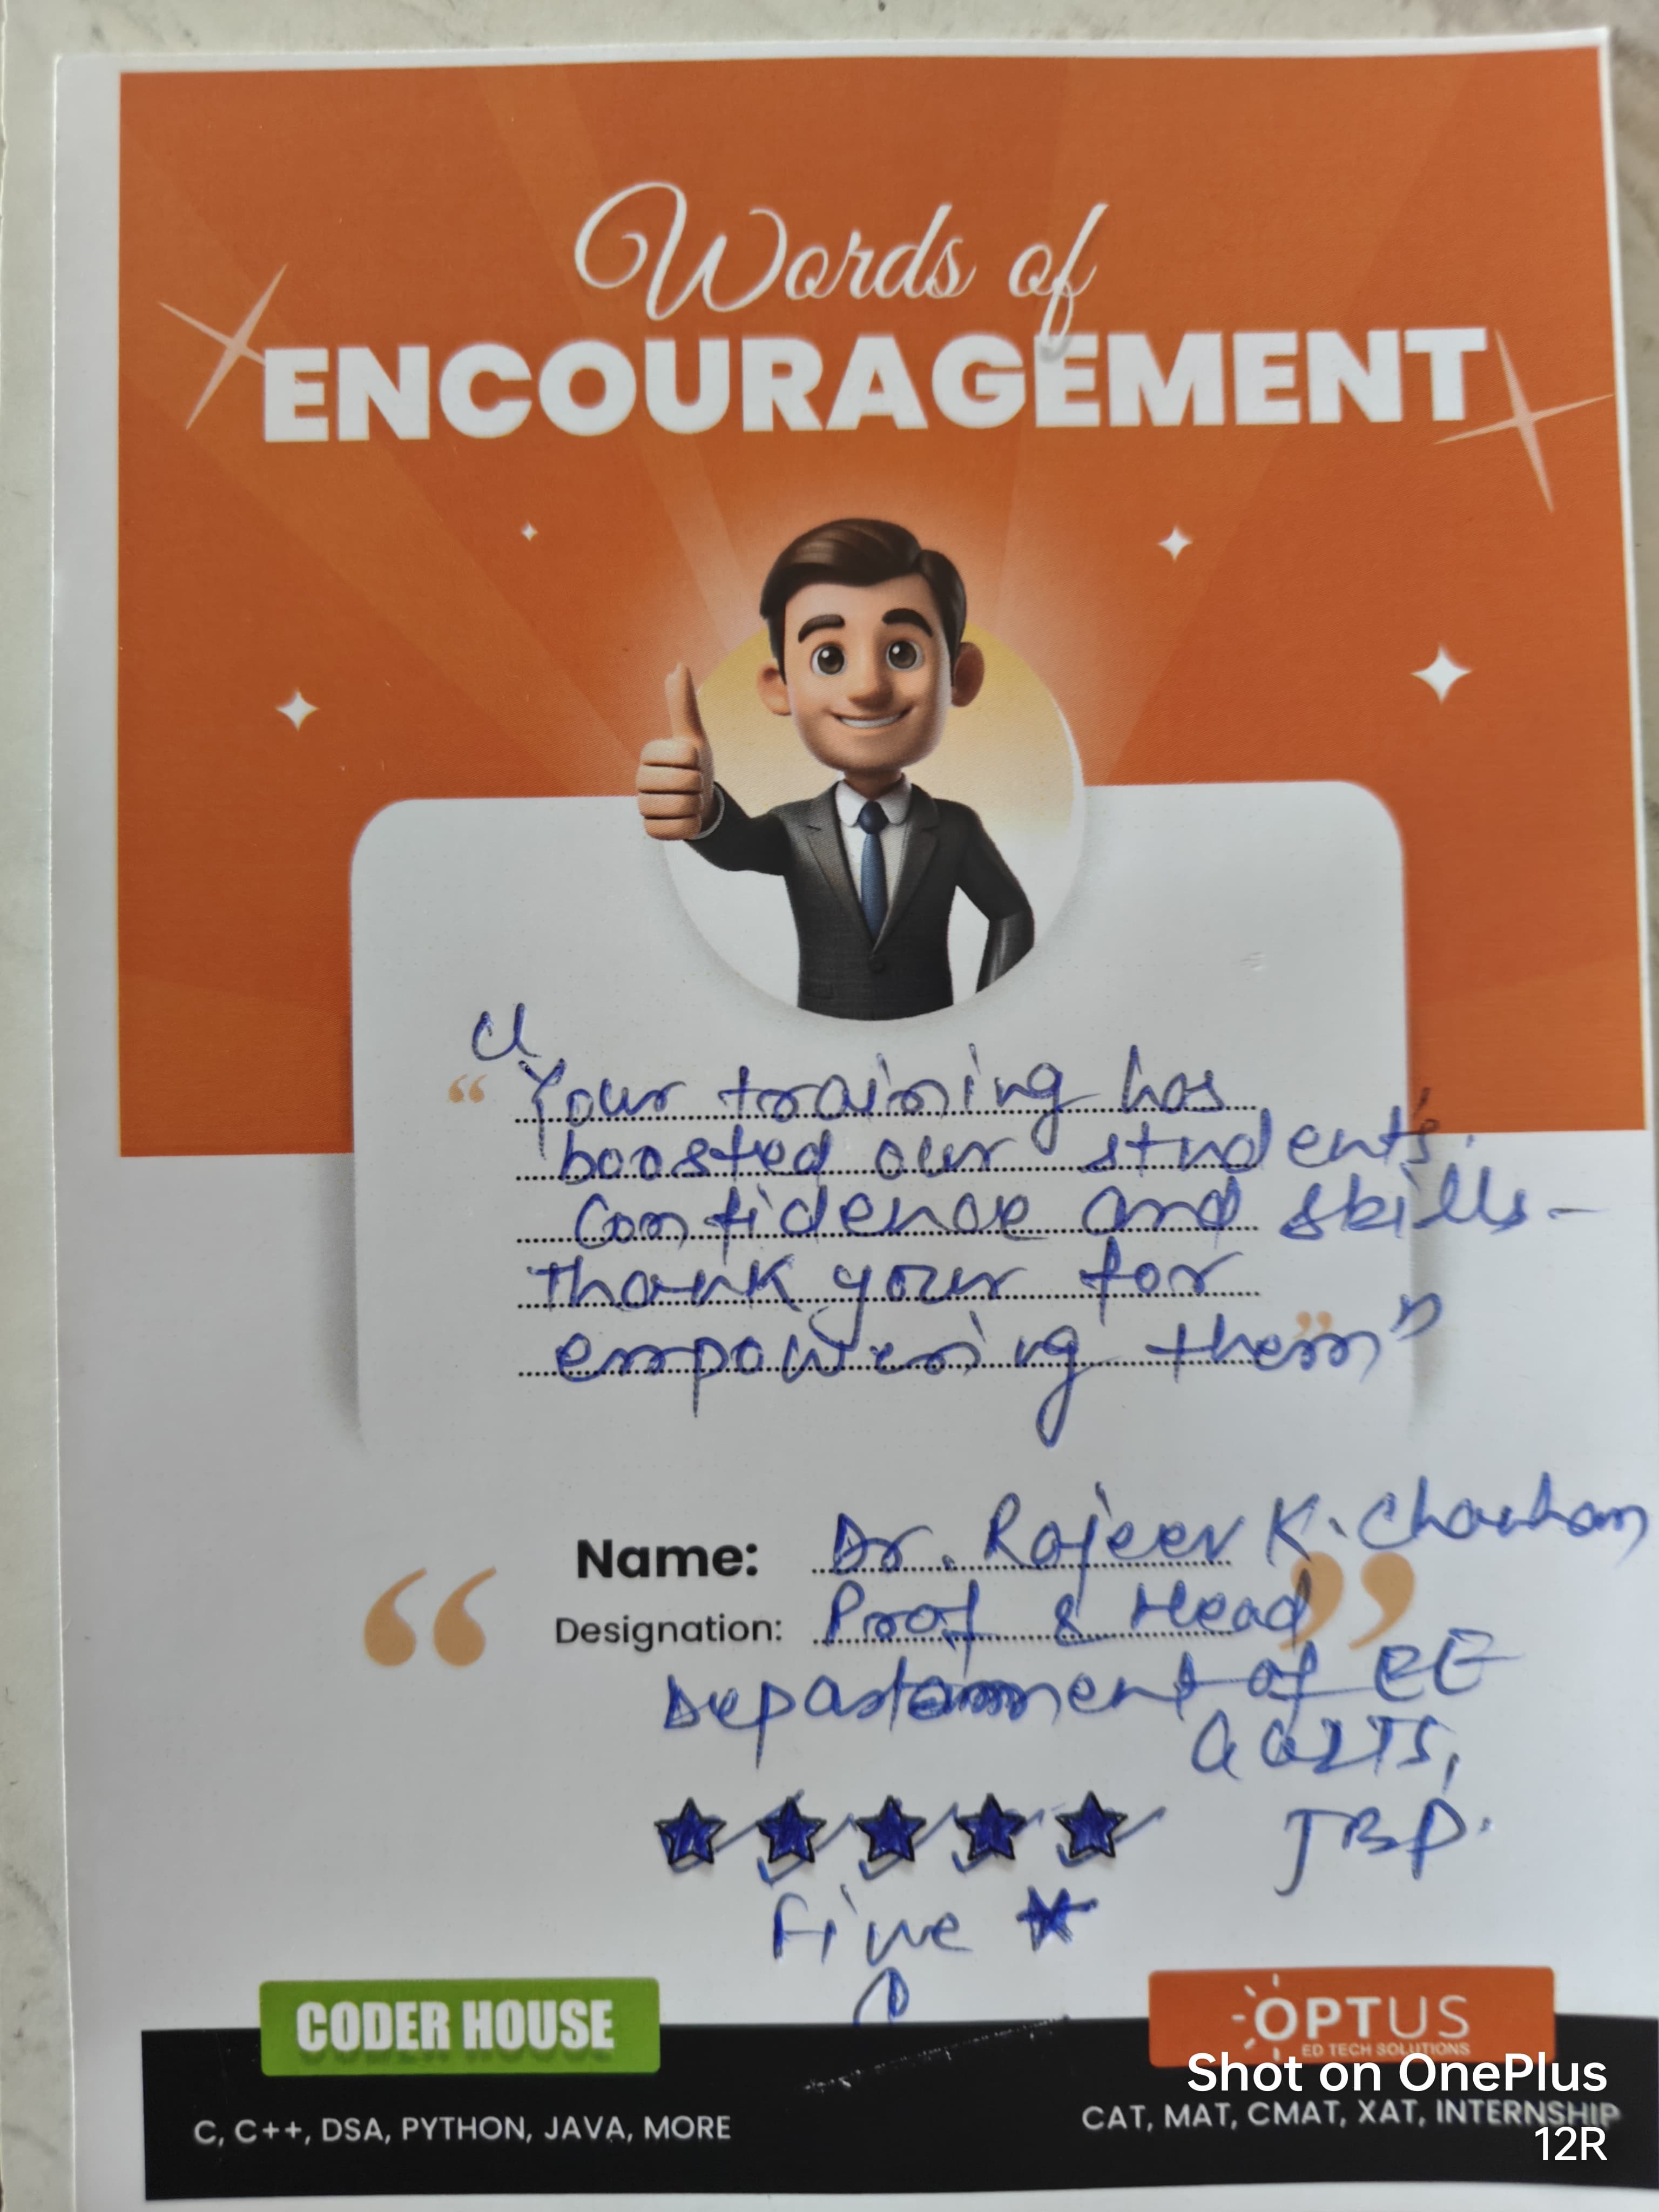 Words of
ENCOURAGEMENT
“ Your training has
boosted our student's.
Confidence and skills-
Thank your for
empowering them”
Name: Dr. Rajeev K. Chouhan
Designation: Prof & Head
Department of EE
GGITS,
JBP.
Five ★
CODER HOUSE
OPTUS
ED TECH SOLUTIONS
C, C++, DSA, PYTHON, JAVA, MORE
CAT, MAT, CMAT, XAT, INTERNSHIP
Shot on OnePlus
12R